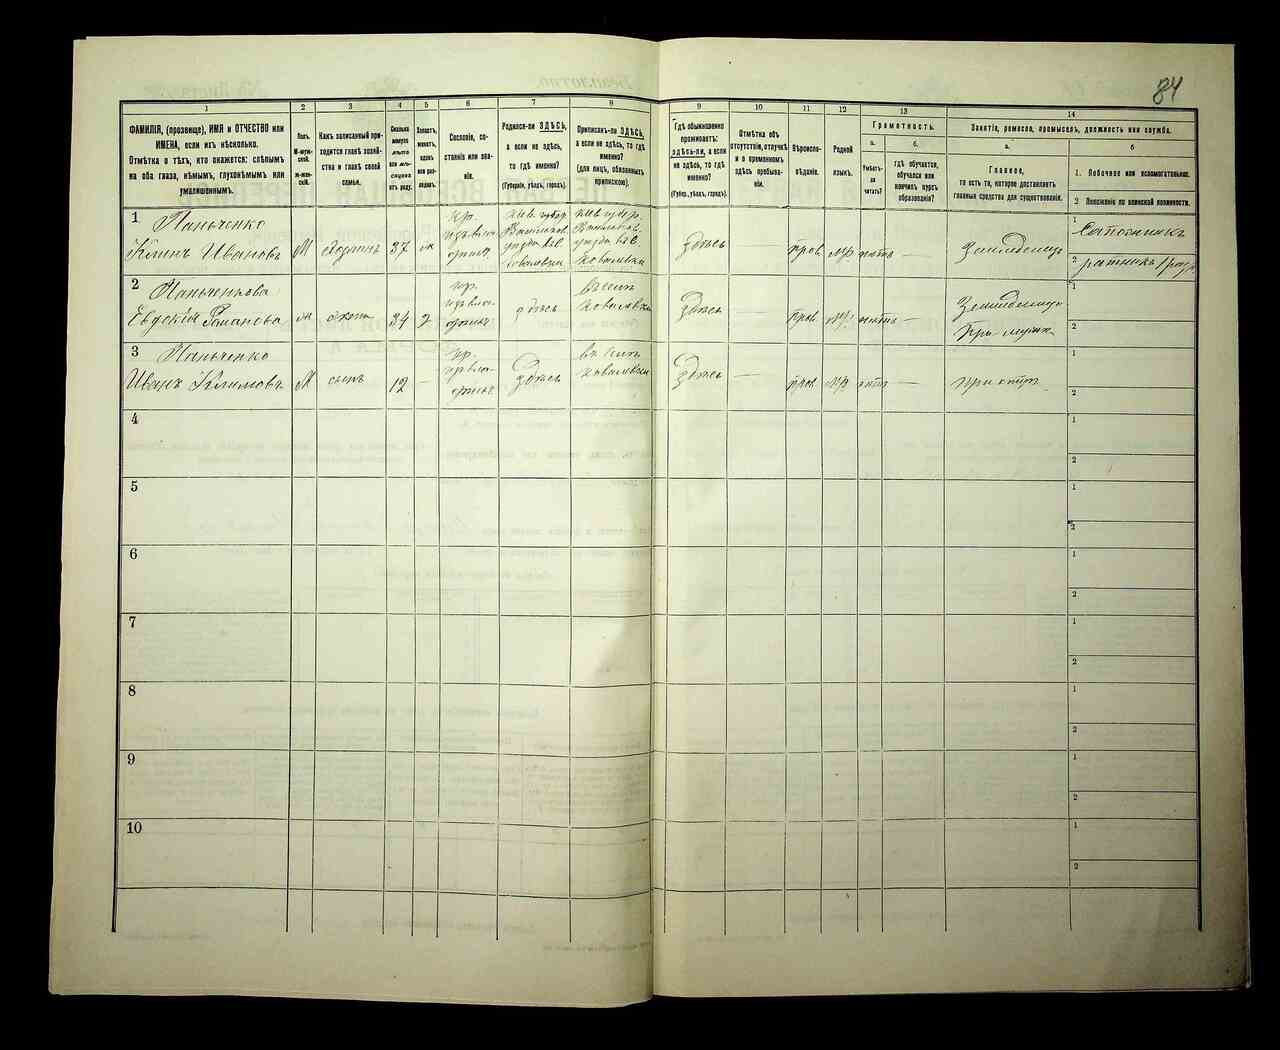 84
1
2
3
4
5
6
7
8
9
10
11
12
13
14
ФАМИЛІЯ, (прозвище), ИМЯ и ОТЧЕСТВО или
ИМЕНА, если ихъ нѣсколько.
Отмѣтка о тѣхъ, кто окажется: слѣпымъ
на оба глаза, нѣмымъ, глухонѣмымъ или
умалишеннымъ.
Полъ.
М-муж-
ской.
ж-жен-
скій.
Какъ записанный при-
ходится главѣ хозяй-
ства и главѣ своей
семьи.
Сколько
минуло
лѣтъ
или мѣ-
сяцевъ
отъ роду.
Холостъ,
женатъ,
вдовъ
или раз-
веденъ.
Сословіе, со-
стояніе или зва-
ніе.
Родился-ли ЗДѢСЬ,
а если не здѣсь,
то гдѣ именно?
(Губернія, уѣздъ, городъ).
Приписанъ-ли ЗДѢСЬ,
а если не здѣсь, то гдѣ
именно?
(для лицъ, обязанныхъ
припискою).
Гдѣ обыкновенно
проживаетъ:
здѣсь-ли, а если
не здѣсь, то гдѣ
именно?
(Губерн., уѣздъ, городъ).
Отмѣтка объ
отсутствіи, отлучкѣ
и о временномъ
здѣсь пребыва-
ніи.
Вѣроиспо-
вѣданіе.
Родной
языкъ.
Грамотность.
а.
б.
Умѣетъ-
ли
читать?
гдѣ обучается,
обучался или
кончилъ курсъ
образованія?
Занятія, ремесло, промыселъ, должность или служба.
а.
б
Главное,
то есть то, которое доставляетъ
главныя средства для существованія.
1. Побочное или вспомогательное.
2 Положеніе по воинской повинности.
1
Паньченко
Климъ Ивановъ
М
хозяинъ
37
кр.
Кіев. губер.
Васильков.
уѣзда
Ковалевки
здѣсь
—
прав
мр
нѣтъ
—
Землѣдѣлецъ
1
Сапожникъ
2
ратникъ
2
Паньченкова
Евдокія Романова
жена
34
кр.
здѣсь
Ковалевки
здѣсь
—
прав
мр
нѣтъ
—
При мужѣ
1
2
3
Паньченко
Иванъ Климовъ
М
сынъ
12
—
кр.
здѣсь
Ковалевки
здѣсь
—
прав
мр
нѣтъ
—
при отцѣ
1
2
4
1
2
5
1
2
6
1
2
7
1
2
8
1
2
9
1
2
10
1
2